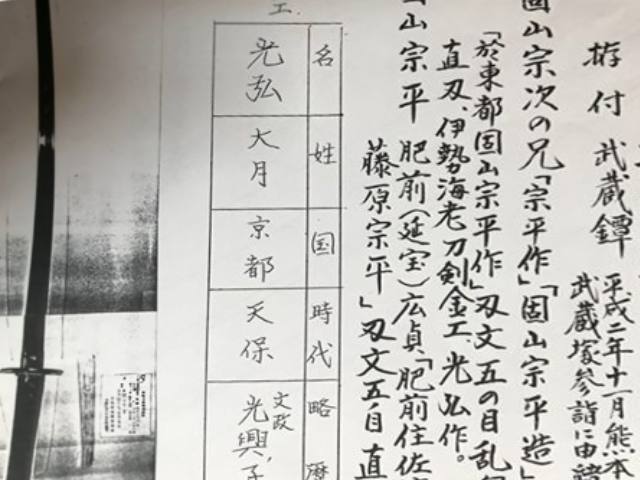 拵付 武蔵鐔 平成二年十一月熊本
武蔵塚参詣に由緒
固山宗次の兄「宗平作」「固山宗平造」
「於東都固山宗平作」刃文五の目乱
直刃、伊勢海老刀剣金工、光弘作。
「固山宗平 肥前(延宝)広貞「肥前住佐
藤原宗平」刃文五ノ目 直
工.
名 姓 国 時代 略歴
光弘 大月 京都 天保 文政 光興、子